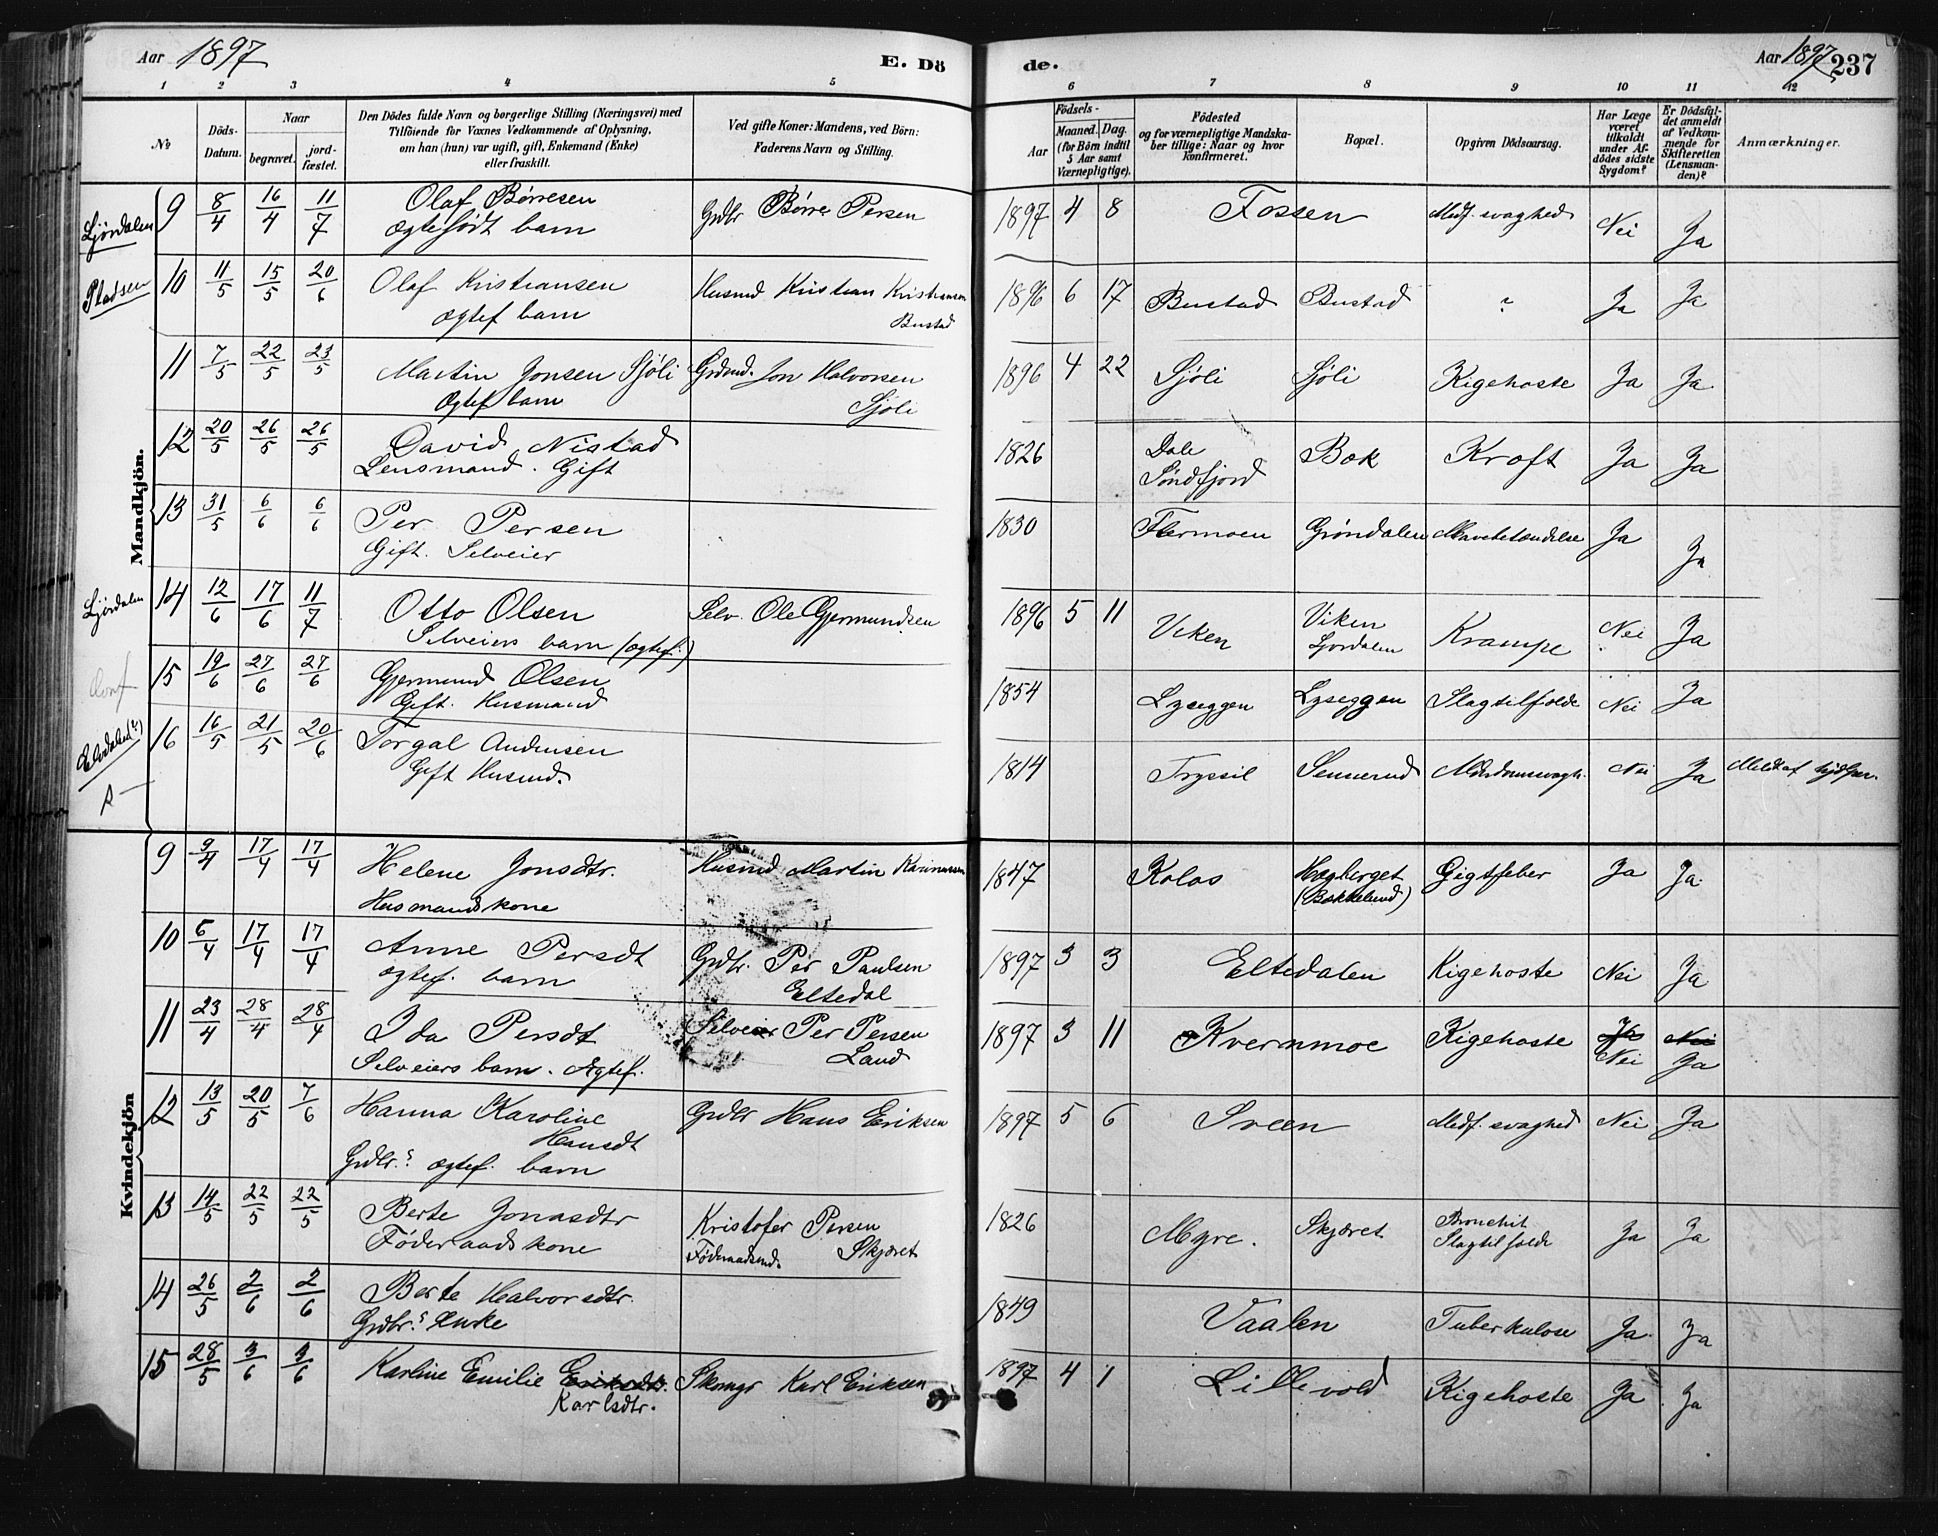 Aar 1897
E. Dö
de.
Aar 1897
237
1 2 3 4 5 6 7 8 9 10 11 12
№
Döds-
Datum.
Naar
begravet. jord-
fæstet.
Den Dödes fulde Navn og borgerlige Stilling (Næringsvei) med
Tilföiende for Voxnes Vedkommende af Oplysning,
om han (hun) var ugift, gift, Enkemand (Enke)
eller fraskilt.
Ved gifte Koner: Mandens, ved Börn:
Faderens Navn og Stilling.
Födsels-
Aar Maaned. Dag.
(for Börn indtil
5 Aar samt
Værnepligtige).
Födested
og for værnepligtige Mandska-
ber tillige: Naar og hvor
konfirmeret.
Bopæl.
Opgiven Dödsaarsag.
Har Læge
været
tilkaldt
under Af-
dödes sidste
Sygdom?
Er Dödsfal-
det anmeldt
af Vedkom-
mende for
Skifteretten
(Lensman-
den)?
Anmærkninger.
Mandkjön.
Ljørdalen 9 8/4 16/4 11/7 Olaf Børresen Grdbr Børre Persen 1897 4 8 Fossen Medf. svaghed Nei Ja
ægtefødt barn
Pladsen 10 11/5 15/5 20/6 Olaf Kristiansen Husmd Kristian Kristiansen 1896 6 17 Bustad Bustad ? Ja Ja
ægtef barn Bustad
11 7/5 22/5 23/5 Martin Jonsen Sjøli Grdmd. Jon Halvorsen 1896 4 22 Sjøli Sjøli Kigehoste Ja Ja
Ægtef barn Sjøli
12 20/5 26/5 26/5 David Nistad 1826 Dale Bæk Kræft Ja Ja
Lensmand. Gift Søndfjord
13 31/5 6/6 6/6 Per Persen 1830 Flermoen Grøndalen Mavebetændelse Ja Ja
Gift. Selveier
Ljørdalen 14 12/6 17/6 11/7 Otto Olsen Selv. Ole Gjermundsen 1896 5 11 Viken Viken Krampe Nei Ja
Selveiers barn (ægtef.) Ljørdalen
15 19/6 27/6 27/6 Gjermund Olsen 1854 Lyseggen Lyseggen Slagtilfælde Nei Ja
Gift. Husmand
16 16/5 21/5 20/6 Torgal Andersen 1814 Trysil Sennerud Alderdomssvagh. Nei Ja
Gift Husmd.
Kvindekjön
9 9/4 17/4 17/4 Helene Jonsdtr. Husmd Martin 1847 Kolos Hagberget Gigtfeber Ja Ja
Husmandskone (Bakkelund)
10 5/4 17/4 17/4 Anne Persdt Grdbr. Per Paulsen 1897 3 3 Eltedalen Kigehoste Nei Ja
ægtef. barn Eltedal
11 23/4 28/4 28/4 Ida Persdt Selveier Per Persen 1897 3 11 Kvernmoe Kigehoste Ja Nei Nei Ja
Selveiers barn. Ægtef. Land
12 13/5 20/5 7/6 Hanna Karoline Grdbr Hans Eriksen 1897 5 6 Sveen Medf. svaghed Nei Ja
Hansdt
Grdbr.s ægtef. barn
13 14/5 22/5 22/5 Berte Jonasdtr Kristofer Persen 1826 Myre. Skjæret Bronchit Ja Ja
Føderaadskone Føderaadsmd. Skjæret Slagtilfælde
14 26/5 2/6 2/6 Berte Halvorsdtr. 1849 Vaalen Tuberkulose Ja Ja
Grdbr.s Enke
15 28/5 3/6 3/6 Karline Emilie Eriksdtr. Skomgr Karl Eriksen 1897 4 1 Lillevold Kigehoste Ja Ja
Karlsdtr.